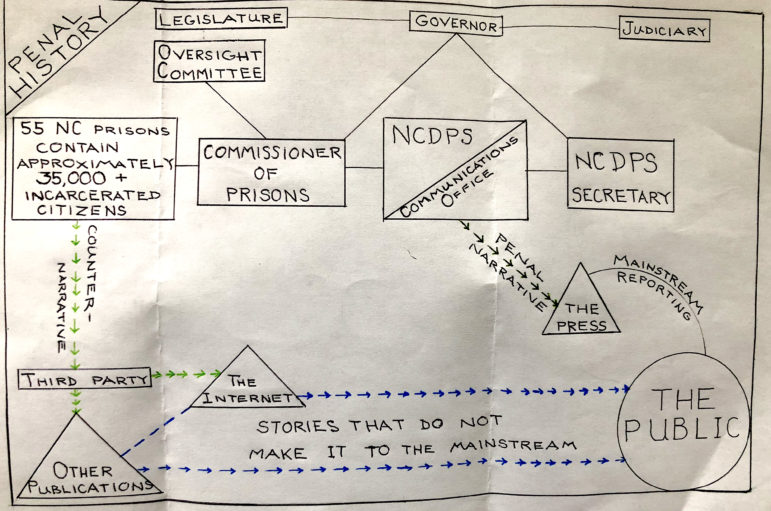 PENAL
HISTORY
LEGISLATURE
GOVERNOR
JUDICIARY
OVERSIGHT
COMMITTEE
55 NC PRISONS
CONTAIN
APPROXIMATELY
35,000 +
INCARCERATED
CITIZENS
COMMISSIONER
OF
PRISONS
NCDPS
COMMUNICATIONS
OFFICE
NCDPS
SECRETARY
COUNTER-
NARRATIVE
PENAL
NARRATIVE
MAINSTREAM
REPORTING
THE
PRESS
THIRD PARTY
THE
INTERNET
STORIES THAT DO NOT
MAKE IT TO THE MAINSTREAM
THE
PUBLIC
OTHER
PUBLICATIONS